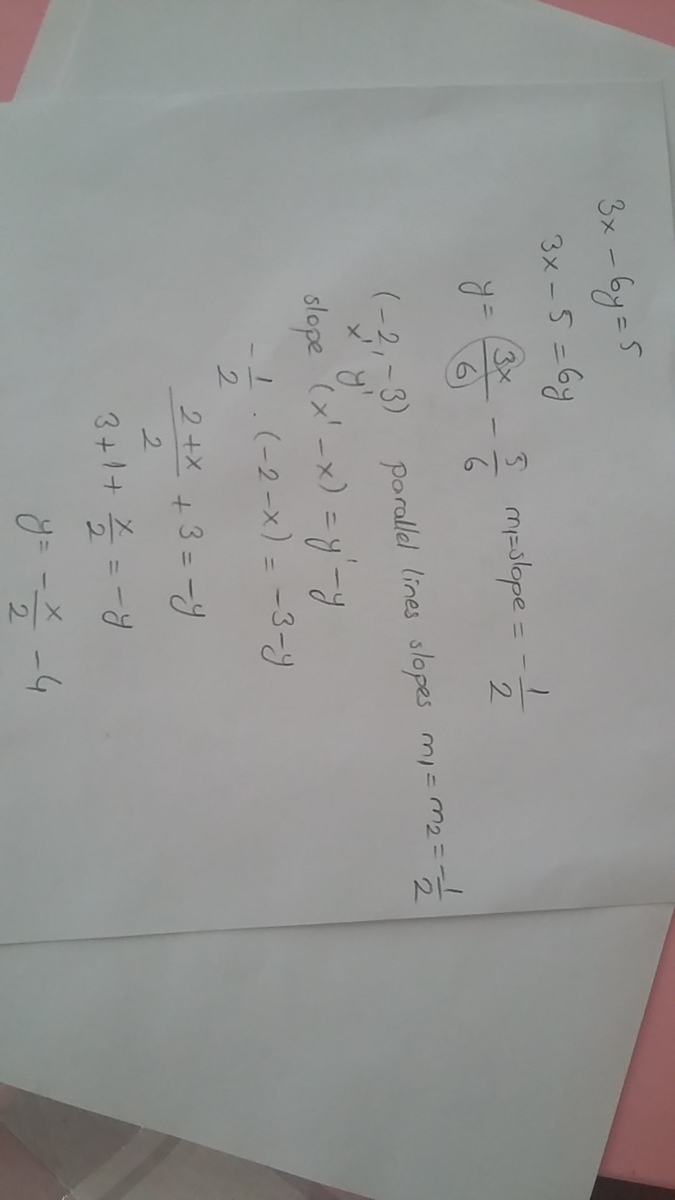 3x - 6y = 5
3x - 5 = 6y
y = 3x/6 - 5/6 m₁=slope = -1/2
(-2, -3) parallel lines slopes m₁ = m₂ = -1/2
x' y'
slope (x' - x) = y' - y
-1/2 . (-2 - x) = -3 - y
2+x/2 + 3 = -y
3 + 1 + x/2 = -y
y = -x/2 - 4